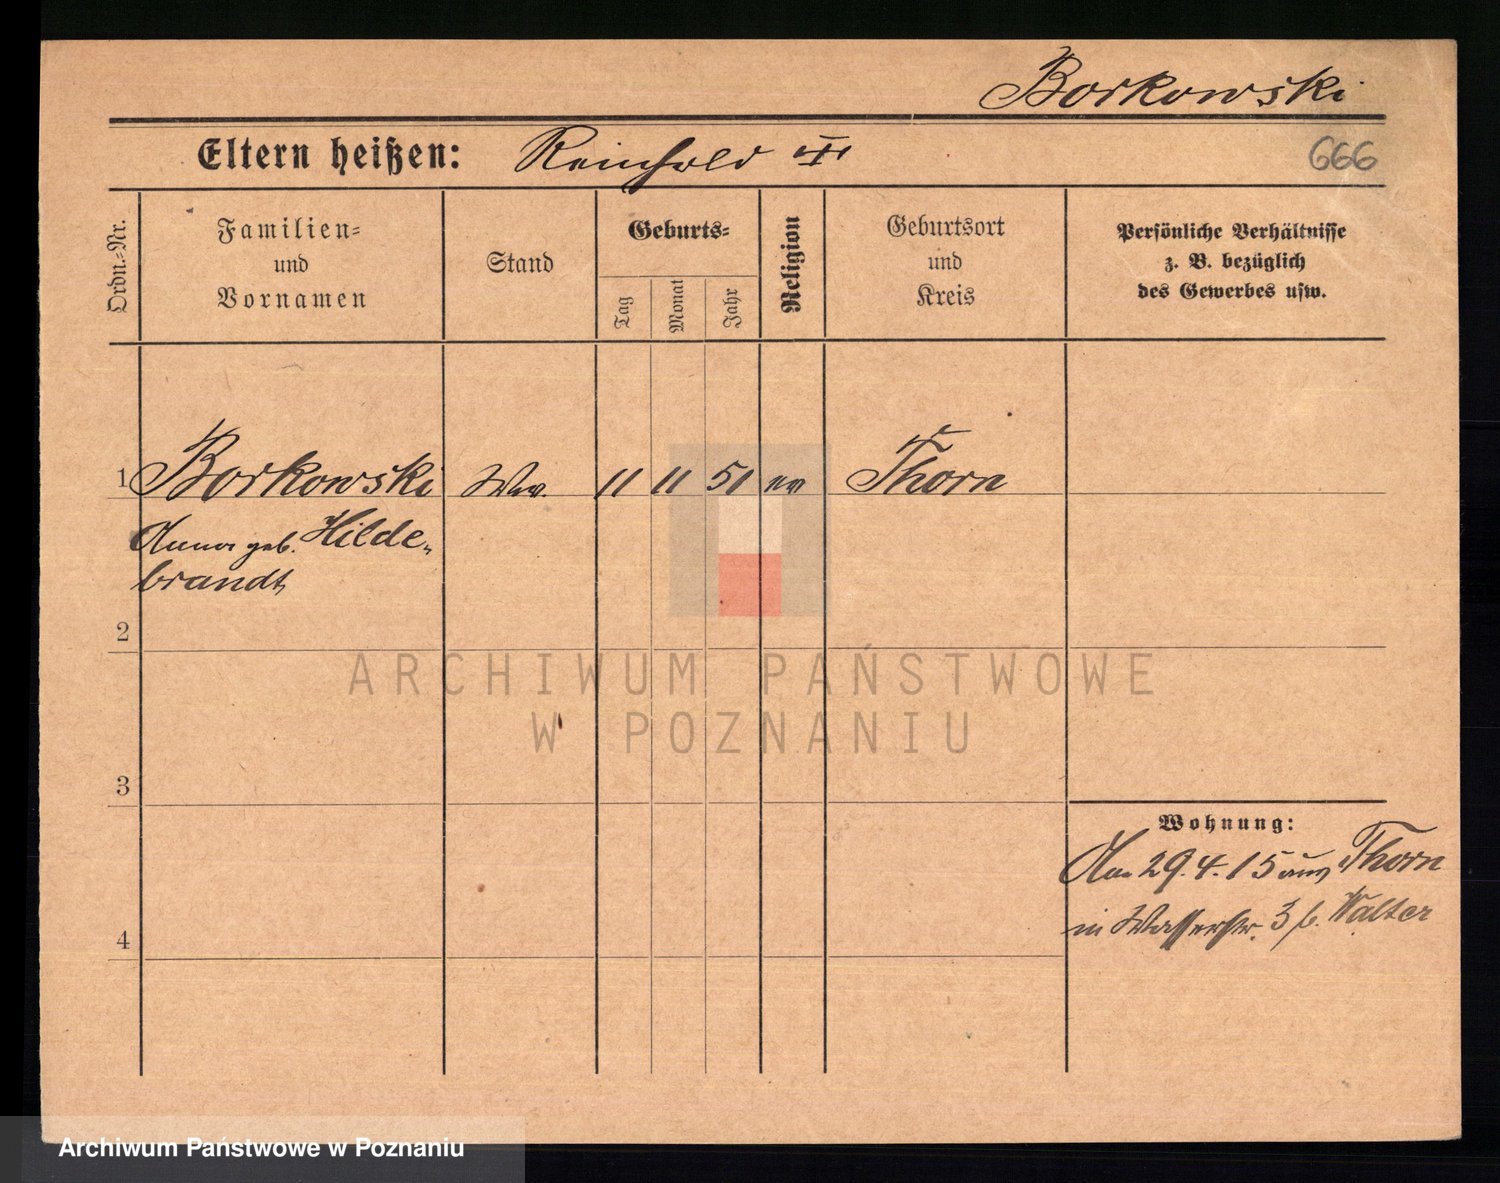 Borkowski
Eltern heißen: Reinhold III
666
Ordn.-Nr.
Familien-
und
Vornamen
Stand
Geburts-
Tag
Monat
Jahr
Religion
Geburtsort
und
Kreis
Persönliche Verhältnisse
z. B. bezüglich
des Gewerbes usw.
1 Borkowski Ww. 11 11 51 ev Thorn
Anna geb. Hilde-
brandt
2
3
4
Wohnung:
Am 29.4.15 aus Thorn
in Wasserstr. 3 b. Walter
ARCHIWUM PAŃSTWOWE
W POZNANIU
Archiwum Państwowe w Poznaniu